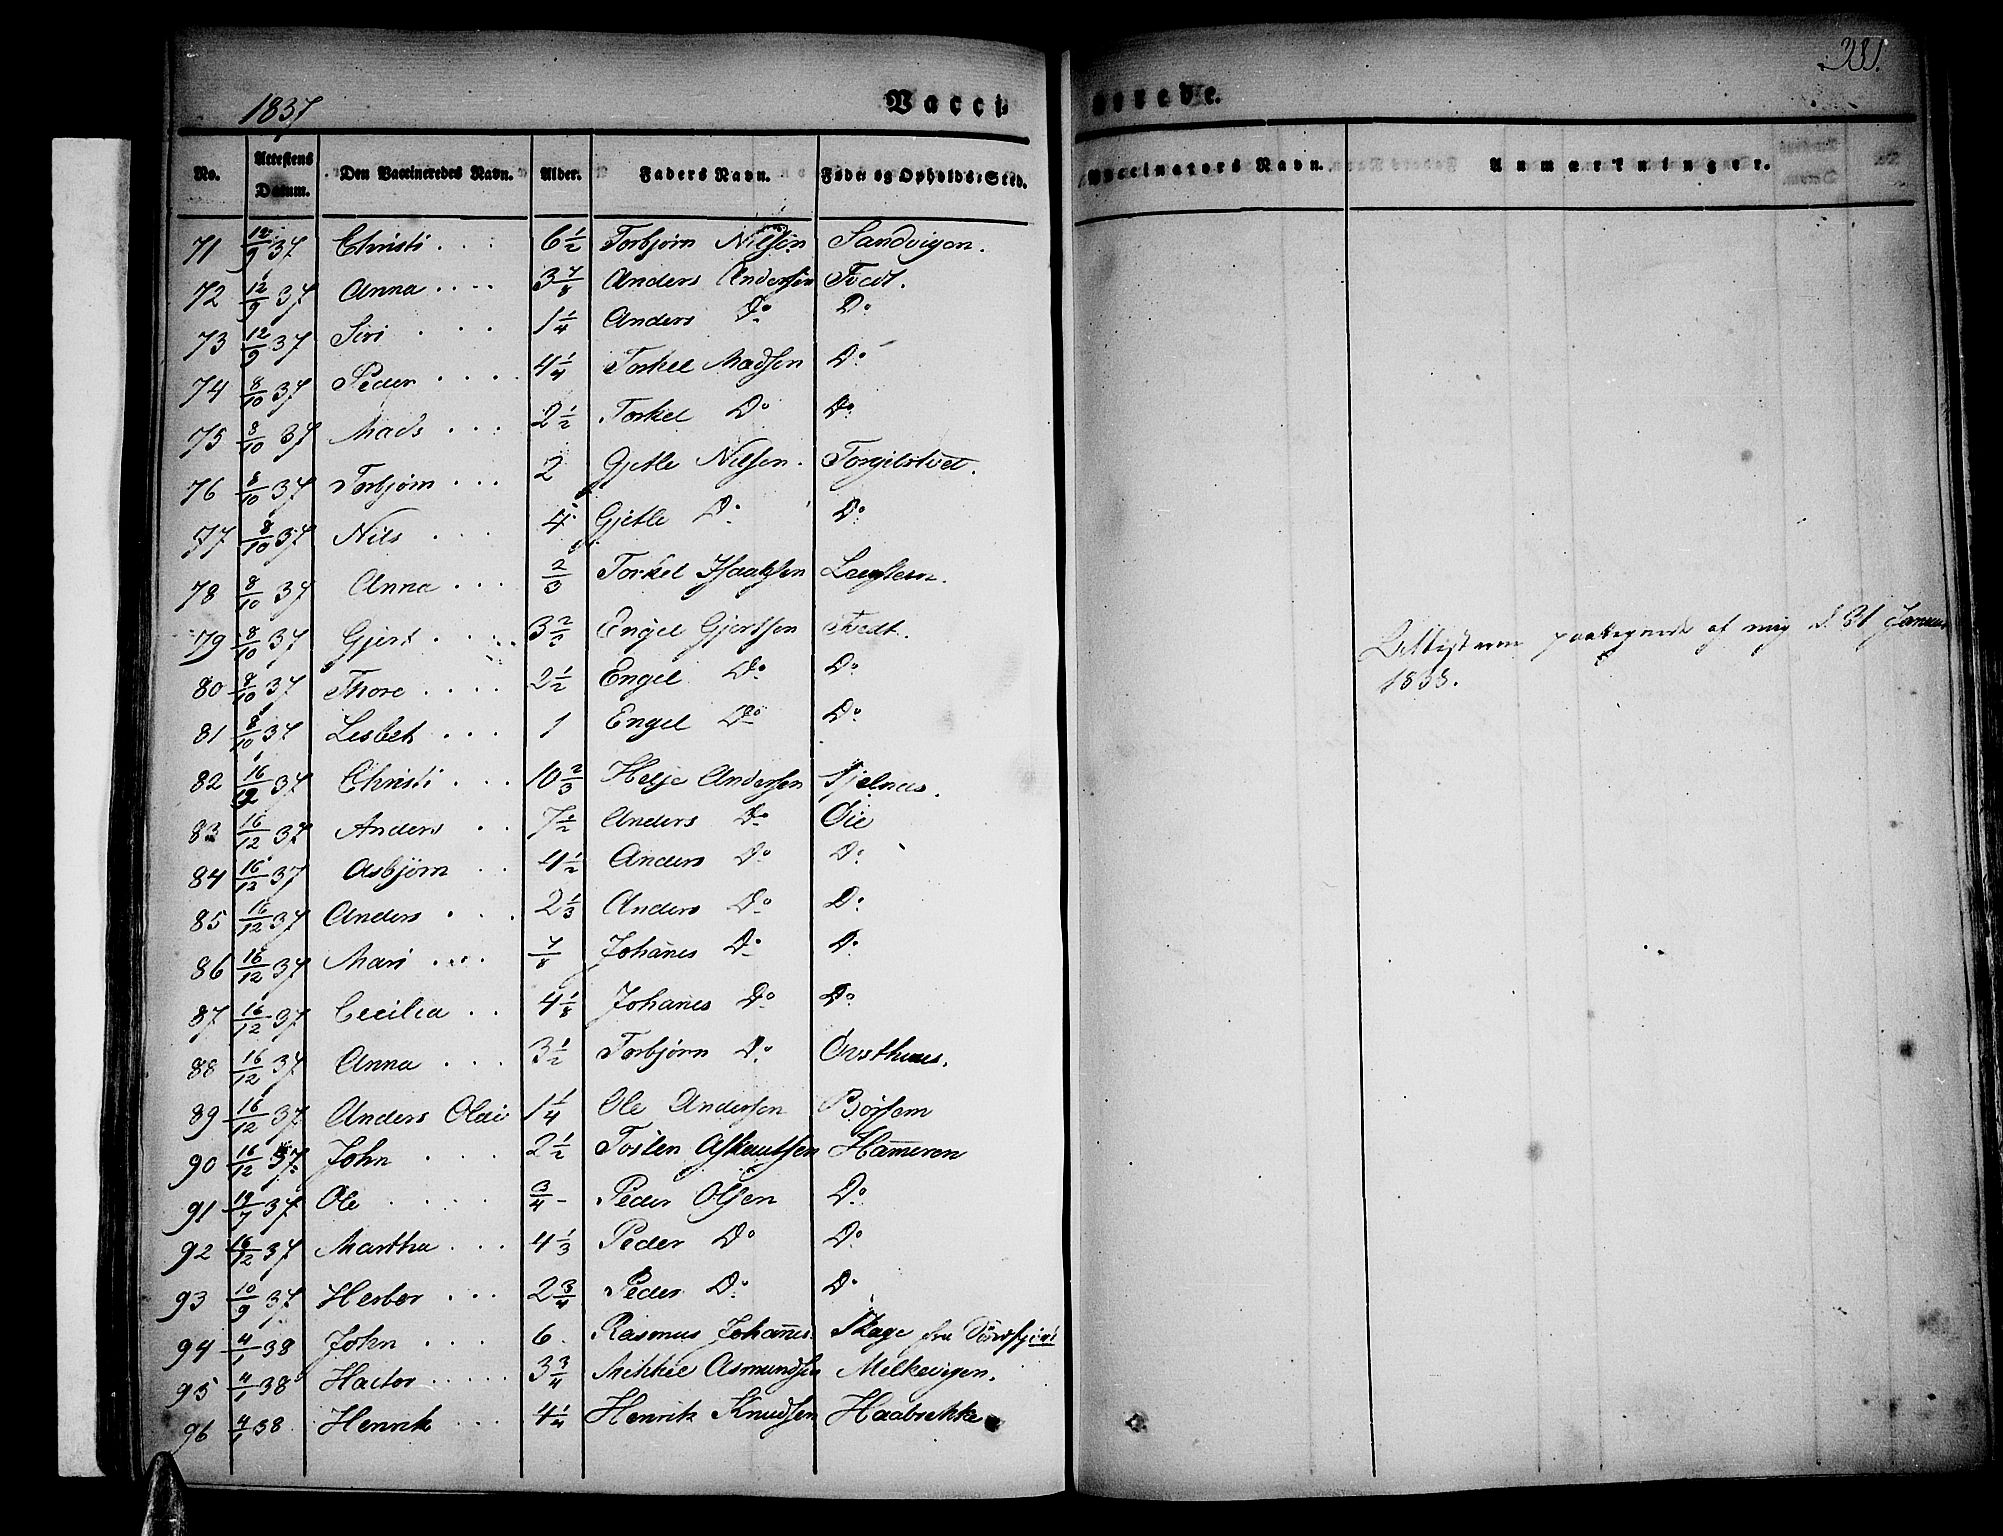 281.
1837 Vaccinerede.
No. Attestens Datum. Den Vaccineredes Navn. Alder. Faders Navn. Føde- og Opholds-Sted. Vaccinators Navn. Anmærkninger.
71 12/9 37 Christi . . . 6 1/2 Torbjørn Nilsøn Sandvigen.
72 12/9 37 Anna . . . . 3 7/8 Anders Andersen Tvedt.
73 12/9 37 Siri . . . 1 1/4 Anders Do Do
74 8/10 37 Peder . . . . 4 1/4 Torkel Madsen Do
75 8/10 37 Mads . . . 2 1/2 Torkel Do Do
76 8/10 37 Torbjørn . . . 2 Gjetle Nilsen. Torgilstvet.
77 8/10 37 Nils . . . 4 Gjetle Do Do
78 8/10 37 Anna . . . 2/3 Torkel
79 8/10 37 Gjert . . . 3 Engel Gjertsen Tvedt.
80 8/10 37 Thore . . . . 2 1/2 Engel Do Do
81 8/10 37 Lisbet . . . 1 Engel Do Do
82 16/12 37 Christi . . . 10 2/3 Helje Andersen Tjelnæs.
83 16/12 37 Anders . . 7 1/2 Anders Do Øie
84 16/12 37 Asbjørn . . 4 1/2 Anders Do Do
85 16/12 37 Anders . . . 2 1/3 Anders Do Do
86 16/12 37 Mari . . . 7/8 Johanes Do Do
87 16/12 37 Cecilia . . 4 1/8 Johanes Do Do
88 16/12 37 Anna . . . 3 1/2 Torbjørn Do Øvsthuus.
89 16/12 37 Anders Olai 1 1/4 Ole Andersen Børsem
90 16/12 37 John . . . 2 1/2 Tosten Askautsen Hameren
91 19/7 37 Ole . . . . 3/4 Peder Olsen Do
92 16/12 37 Martha . . . 4 1/3 Peder Do Do
93 10/9 37 Herbor . . . 2 3/4 Peder Do Do
94 4/1 38 John . . . 6 . Rasmus Johanes. Skage fra
95 4/1 38 Hactor . . . . . 3 3/4 Mikkel Asmundsen Melkevigen.
96 4/1 38 Henrik . . . 4 1/4 Henrik Knudsen Haabrekke
paategnede af mig d. 31 Januar
1838.